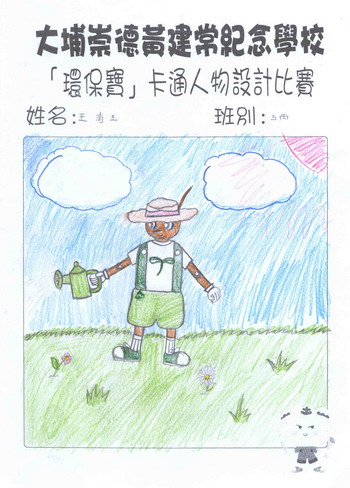 大埔崇德黃建常紀念學校
「環保寶」卡通人物設計比賽
姓名: 王 班別: